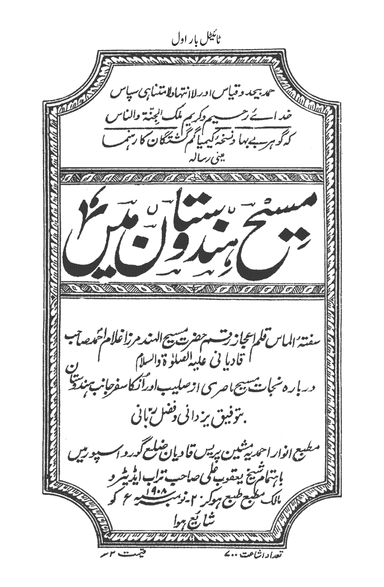 ٹائیٹل بار اول
حمد بیحد و قیاس اور لا انتہا و لا متناہی سپاس
خدائے رحیم و کریم ملک الجنۃ والناس
کہ گوہر بے بہا و نسخہ کیمیا گم گشتگان کا رہنما
یعنی رسالہ
مسیح ہندوستان میں
سفتہ الماس قلم اعجاز رقم حضرت مسیح الہند مرزا غلام احمد صاحب
قادیانی علیہ الصلوٰۃ والسلام
دربارہ نجات مسیح ناصری از صلیب اور اُنکا سفر جانب ہندوستان
بتوفیق یزدانی و فضل ربانی
مطبع انوار احمدیہ مشین پریس قادیان ضلع گورداسپور میں
باہتمام شیخ یعقوب علی صاحب تراب ایڈیٹر و
مالک مطبع طبع ہوکر ۲۰ نومبر ۱۹۰۸ء کو
شائع ہوا
تعداد اشاعت ۷۰۰
قیمت